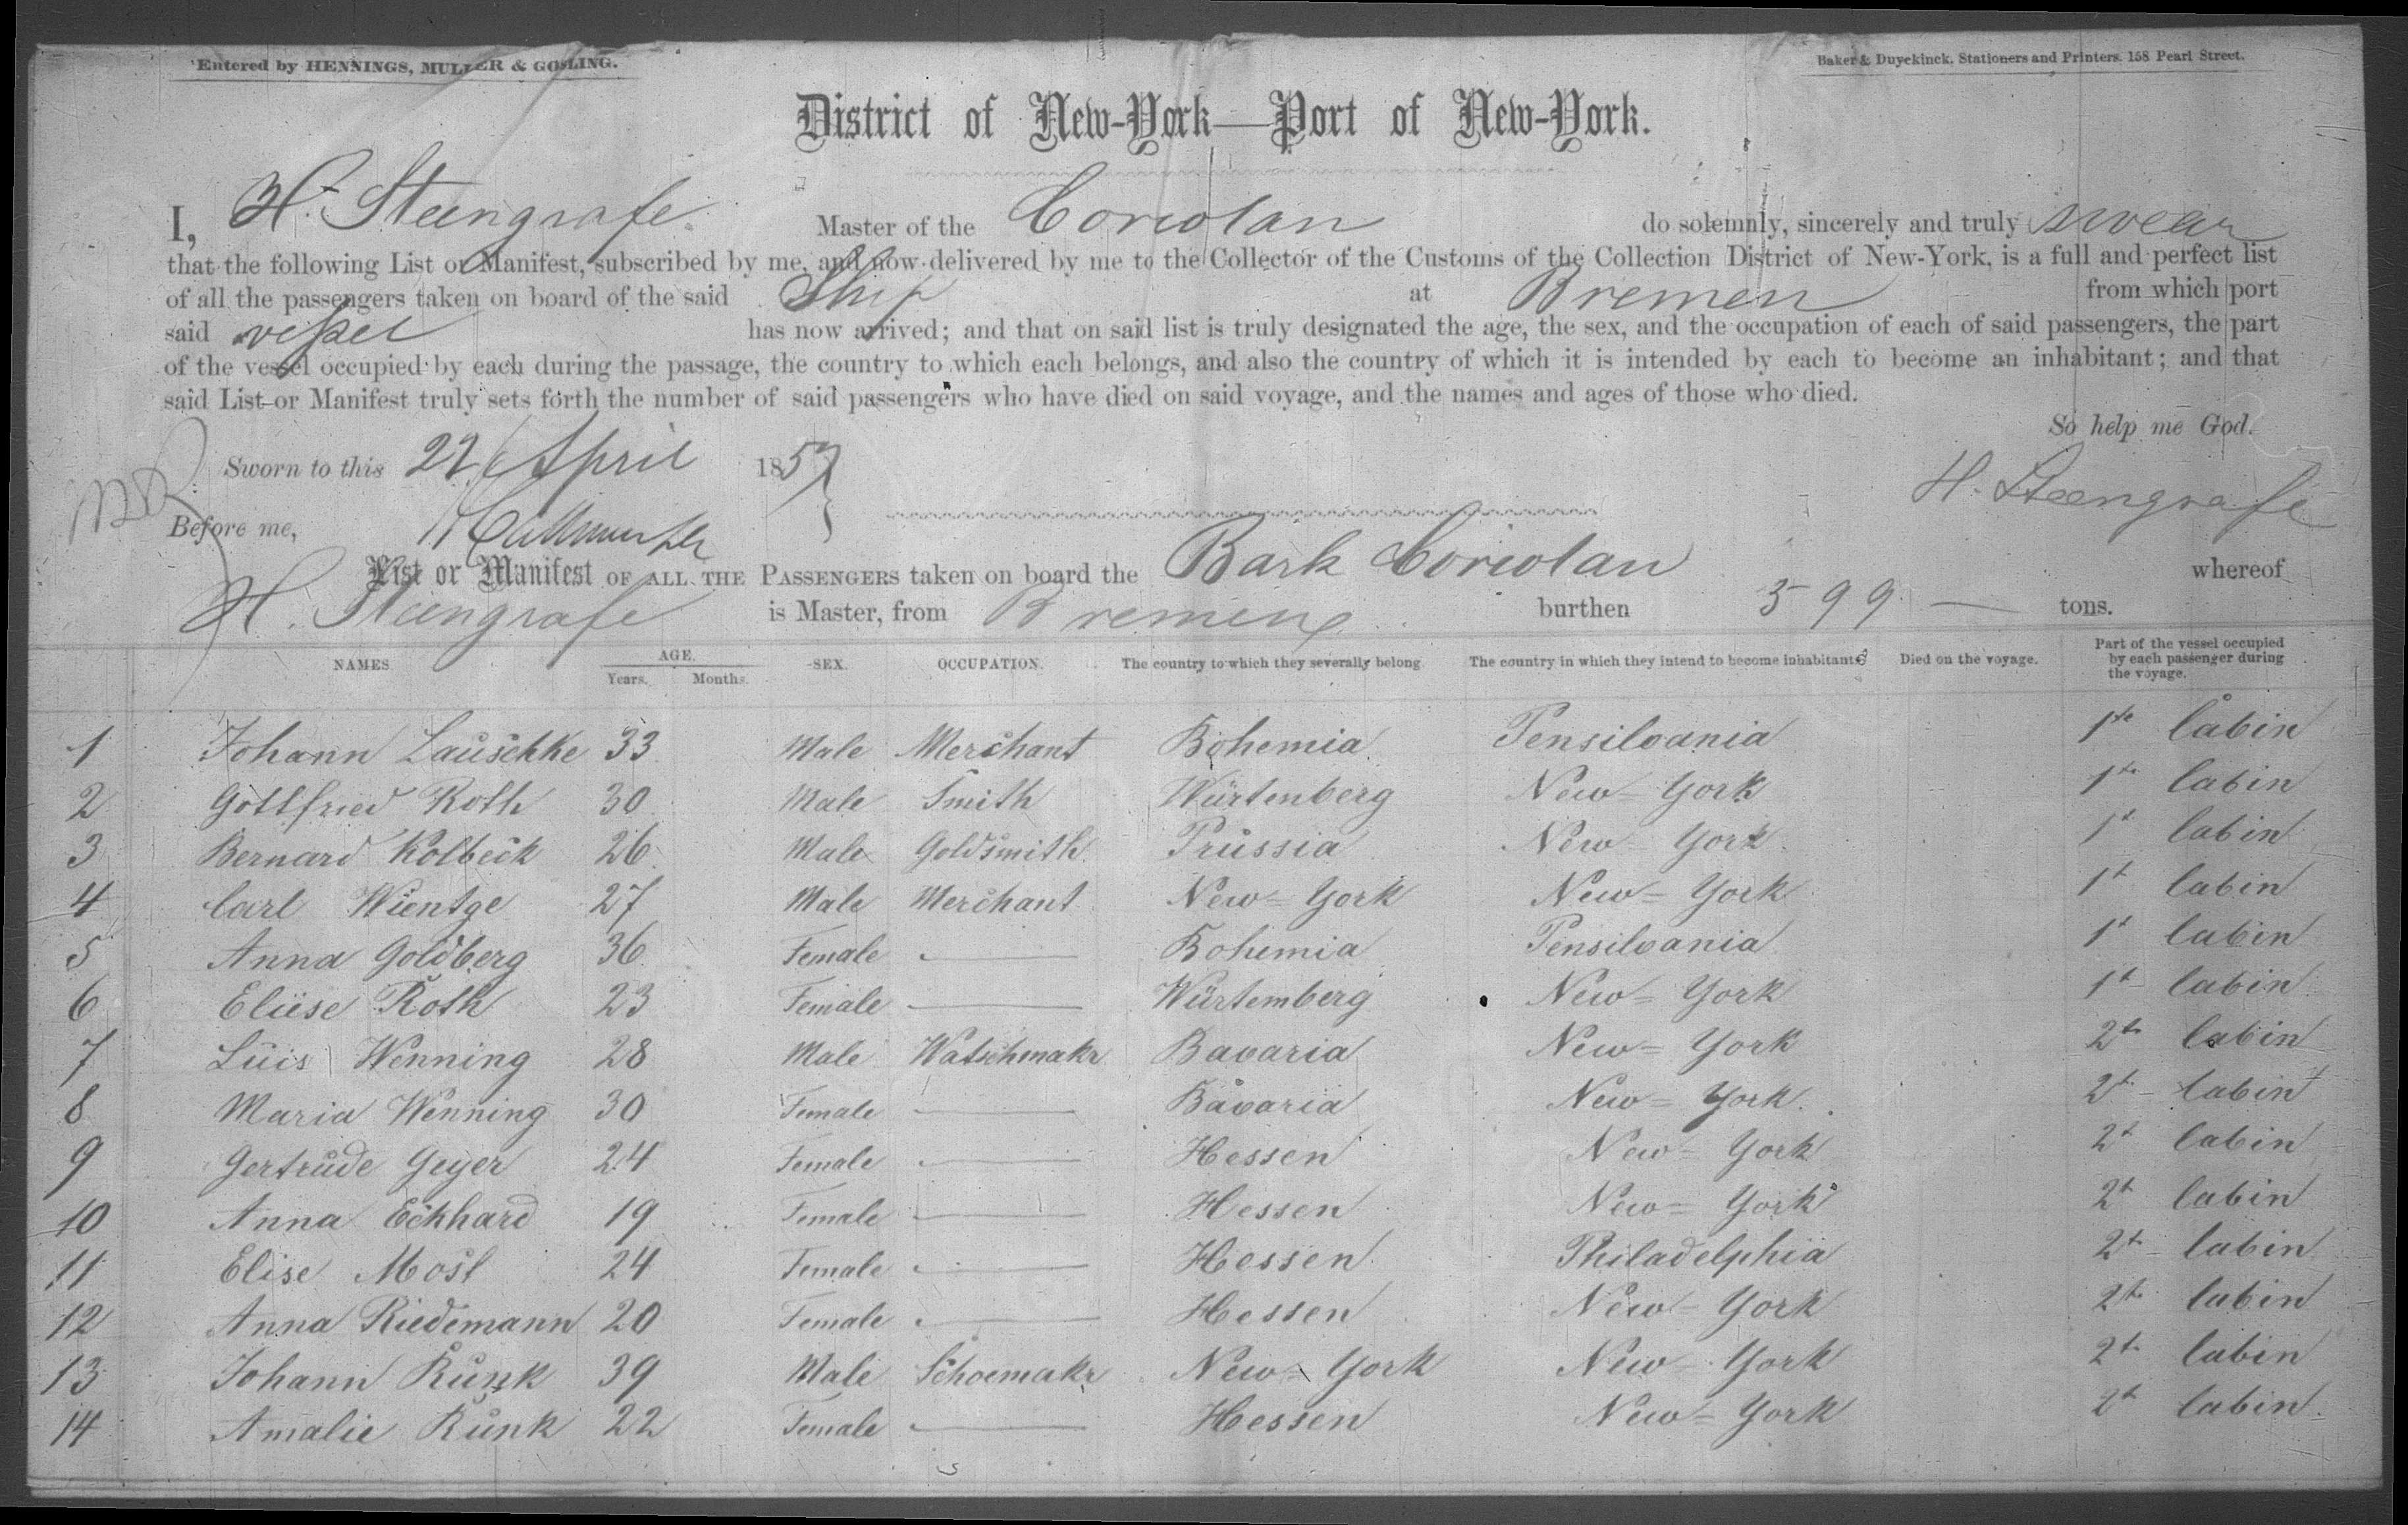 Entered by HENNINGS, MULLER & GOSLING.
Baker & Duyckinck, Stationers and Printers. 158 Pearl Street.
District of New-York—Port of New-York.
I, H. Steengrafe Master of the Coriolan do solemnly, sincerely and truly swear
that the following List or Manifest, subscribed by me, and now delivered by me to the Collector of the Customs of the Collection District of New-York, is a full and perfect list
of all the passengers taken on board of the said Ship at Bremen from which port
said vessel has now arrived; and that on said list is truly designated the age, the sex, and the occupation of each of said passengers, the part
of the vessel occupied by each during the passage, the country to which each belongs, and also the country of which it is intended by each to become an inhabitant; and that
said List or Manifest truly sets forth the number of said passengers who have died on said voyage, and the names and ages of those who died.
So help me God.
Sworn to this 22 April 1857
H. Steengrafe
Before me,
List or Manifest OF ALL THE PASSENGERS taken on board the Bark Coriolan whereof
H. Steengrafe is Master, from Bremen burthen 599 — tons.
NAMES. AGE. Years. Months. SEX. OCCUPATION. The country to which they severally belong. The country in which they intend to become inhabitants. Died on the voyage. Part of the vessel occupied by each passenger during the voyage.
1 Johann Lauschke 33 Male Merchant Bohemia Pensilvania 1te Cabin
2 Gottfried Roth 30 Male Smith Würtenberg New=York 1te Cabin
3 Bernard Kolbeck 26 Male Goldsmith Prussia New=York 1t Cabin
4 Carl Wientge 27 Male Merchant New=York New=York 1t Cabin
5 Anna Goldberg 36 Female — Bohemia Pensilvania 1t Cabin
6 Eliese Roth 23 Female — Würtemberg New=York 1t Cabin
7 Luis Wenning 28 Male Watschmakr Bavaria New=York 2te Cabin
8 Maria Wenning 30 Female — Bavaria New=York 2t Cabin
9 Gertrude Geyer 24 Female — Hessen New=York 2t Cabin
10 Anna Eckhard 19 Female — Hessen New=York 2t Cabin
11 Elise Most 24 Female — Hessen Philadelphia 2t Cabin
12 Anna Riedemann 20 Female — Hessen New=York 2te Cabin
13 Johann Runk 39 Male Schoemakr New=York New=York 2t Cabin
14 Amalie Runk 22 Female — Hessen New=York 2t Cabin